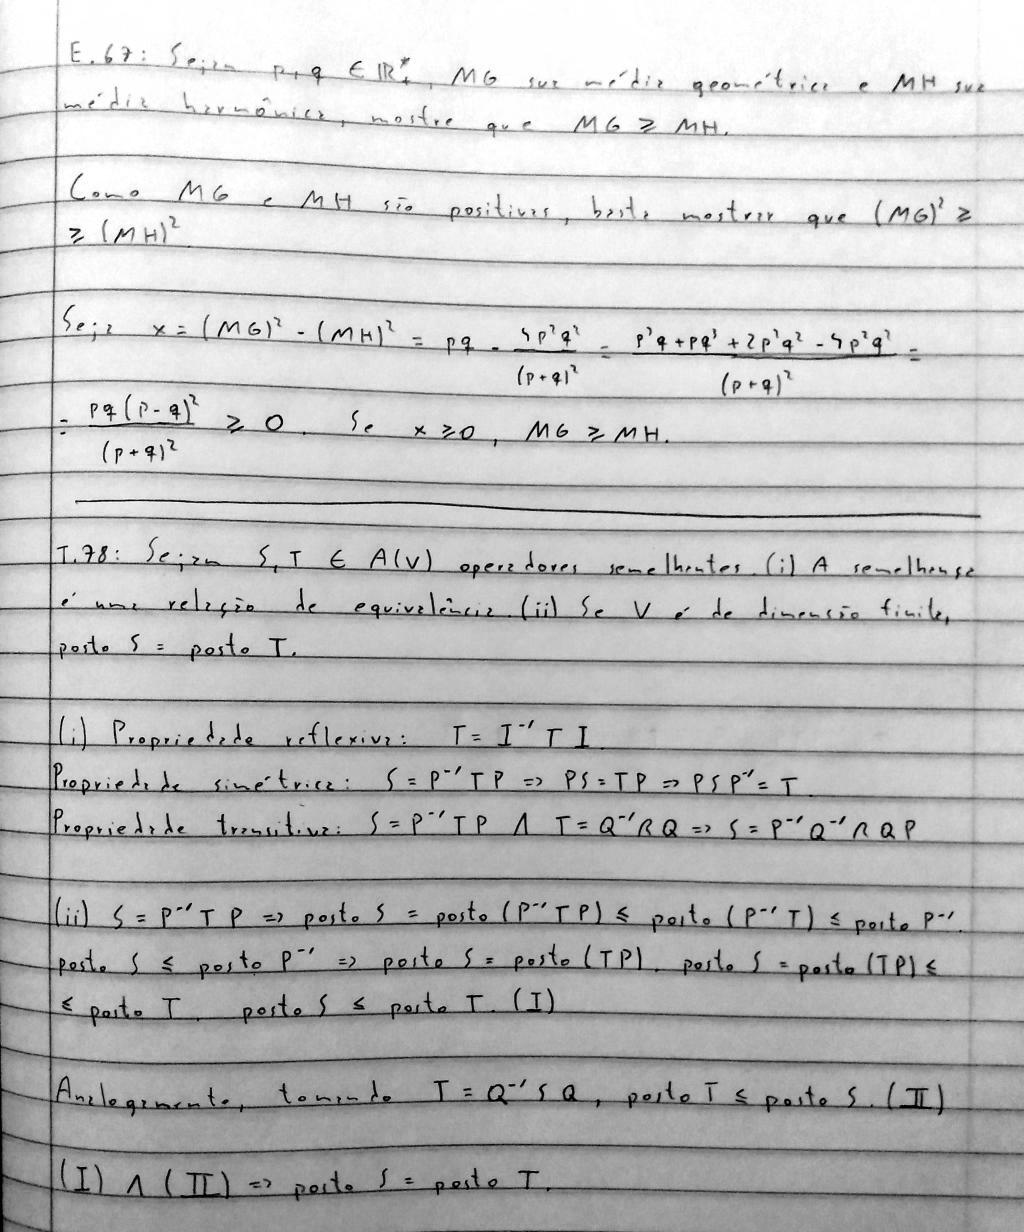 E.67: Sejam p, q ∈ ℝ₊*, MG sua média geométrica e MH sua
média harmônica, mostre que MG ≥ MH.
Como MG e MH são positivas, basta mostrar que (MG)² ≥
≥ (MH)²
Seja x = (MG)² - (MH)² = pq - 4p²q²/(p+q)² = (p³q + pq³ + 2p²q² - 4p²q²)/(p+q)² =
= pq(p-q)²/(p+q)² ≥ 0. Se x ≥ 0, MG ≥ MH.
T.78: Sejam S, T ∈ A(V) operadores semelhantes. (i) A semelhança
é uma relação de equivalência. (ii) Se V é de dimensão finita,
posto S = posto T.
(i) Propriedade reflexiva: T = I⁻¹ T I.
Propriedade simétrica: S = P⁻¹ T P => PS = TP => PSP⁻¹ = T.
Propriedade transitiva: S = P⁻¹ T P ∧ T = Q⁻¹ R Q => S = P⁻¹ Q⁻¹ R Q P
(ii) S = P⁻¹ T P => posto S = posto (P⁻¹ T P) ≤ posto (P⁻¹ T) ≤ posto P⁻¹.
posto S ≤ posto P⁻¹ => posto S = posto (TP). posto S = posto (TP) ≤
≤ posto T. posto S ≤ posto T. (I)
Analogamente, tomando T = Q⁻¹ S Q, posto T ≤ posto S. (II)
(I) ∧ (II) => posto S = posto T.